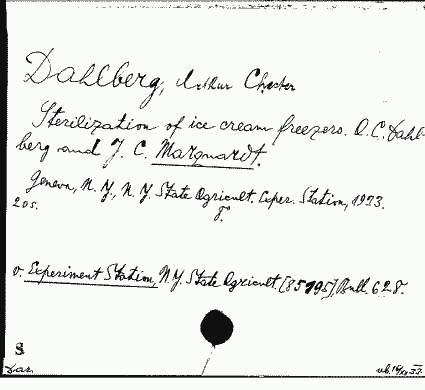 Dahlberg, Arthur Chester
Sterilization of ice cream freezers. A.C. Dahl-
berg and J. C. Marquardt.
Geneva, N. Y., N. Y. State Agricult. Exper. Station, 1933.
20 s. 8°.
v. Experiment Station, N.Y. State Agricult. [85795] Bull. 628.
S